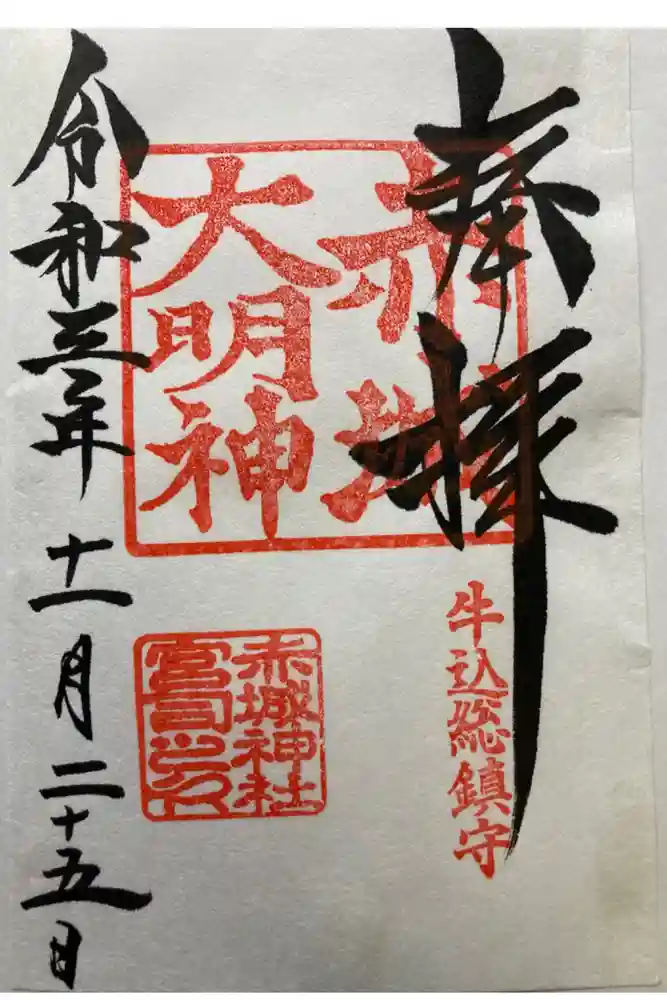 奉拝
赤城
大明神
牛込総鎮守
赤城神社
宮司之印
令和三年十一月二十五日